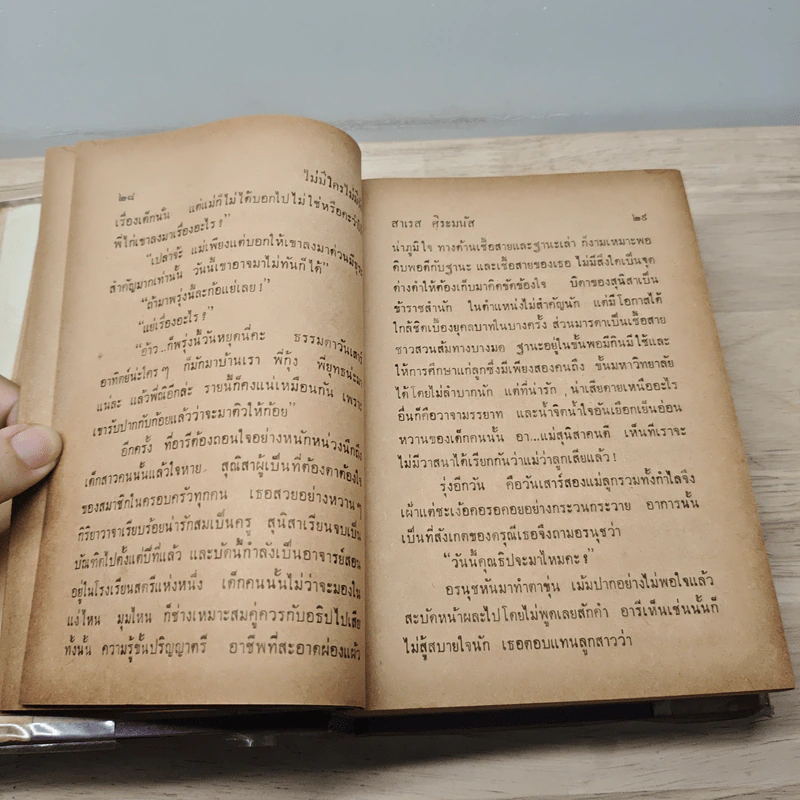 ๒๘ ไม่มีใครไม่มี
เรื่องเด็กนั่น แต่แม่ก็ไม่ได้บอกไปไม่ใช่หรือคะว่า
พี่ไก่เขาลงมาเรื่องอะไร ?”
“เปล่าจ้ะ แม่เพียงแต่บอกให้เขาลงมาด่วนมีธุระ
สำคัญมากเท่านั้น วันนี้เขาอาจมาไม่ทันก็ได้”
“ถ้ามาพรุ่งนี้ละก้อแย่เลย !”
“แย่เรื่องอะไร ?”
“อ้าว ..ก็พรุ่งนี้วันหยุดนี่คะ ธรรมดาวันเสาร์
อาทิตย์น่ะใครๆ ก็มักมาบ้านเรา พี่กุ้ง พี่ยุทธน่ะมา
แน่ละ แล้วพี่ณีอีกล่ะ รายนี้ก็คงแน่เหมือนกัน เพราะ
เขารับปากกับก้อยแล้วว่าจะมาติวให้ก้อย”
อีกครั้ง ที่อารีต้องถอนใจอย่างหนักหน่วงนึกถึง
เด็กสาวคนนั้นแล้วใจหาย. สุณิสาผู้เป็นที่ต้องตาต้องใจ
ของสมาชิกในครอบครัวทุกคน เธอสวยอย่างหวาน ๆ
กิริยาวาจาเรียบร้อยน่ารักสมเป็นครู สุนิสาเรียนจบเป็น
บัณฑิตไปตั้งแต่ปีที่แล้ว และบัดนี้กำลังเป็นอาจารย์สอน
อยู่ในโรงเรียนสตรีแห่งหนึ่ง เด็กคนนั้นไม่ว่าจะมองใน
แง่ไหน มุมไหน ก็ช่างเหมาะสมคู่ควรกับอธิปไปเสีย
ทั้งนั้น ความรู้ขั้นปริญญาตรี อาชีพที่สะอาดผ่องแผ้ว
สาเรส ศิระมนัส ๒๙
น่าภูมิใจ ทางด้านเชื้อสายและฐานะเล่า ก็งามเหมาะพอ
ดิบพอดีกับฐานะ และเชื้อสายของเธอ ไม่มีสิ่งใดเป็นจุด
ด่างดำให้ต้องเก็บมาคิดขัดข้องใจ บิดาของสุนิสาเป็น
ข้าราชสำนัก ในตำแหน่งไม่สำคัญนัก แต่มีโอกาสได้
ใกล้ชิดเบื้องยุคลบาทในบางครั้ง ส่วนมารดาเป็นเชื้อสาย
ชาวสวนส้มทางบางมด ฐานะอยู่ในขั้นพอมีกินมีใช้และ
ให้การศึกษาแก่ลูกซึ่งมีเพียงสองคนถึง ขั้นมหาวิทยาลัย
ได้โดยไม่ลำบากนัก แต่ที่น่ารัก , น่าเสียดายเหนืออะไร
อื่นก็คือวาจามรรยาท และน้ำจิตน้ำใจอันเยือกเย็นอ่อน
หวานของเด็กคนนั้น อา...แม่สุนิสาคนดี เห็นทีเราจะ
ไม่มีวาสนาได้เรียกกันว่าแม่ว่าลูกเสียแล้ว !
รุ่งอีกวัน คือวันเสาร์สองแม่ลูกรวมทั้งกำไลจึง
เฝ้าแต่ชะเง้อคอรอคอยอย่างกระวนกระวาย อาการนั้น
เป็นที่สังเกตของดรุณีเธอจึงถามอรนุชว่า
“วันนี้คุณธิปจะมาไหมคะ ?”
อรนุชหันมาทำตาขุ่น เม้มปากอย่างไม่พอใจแล้ว
สะบัดหน้าผละไปโดยไม่พูดเลยสักคำ อารีเห็นเช่นนั้นก็
ไม่สู้สบายใจนัก เธอตอบแทนลูกสาวว่า